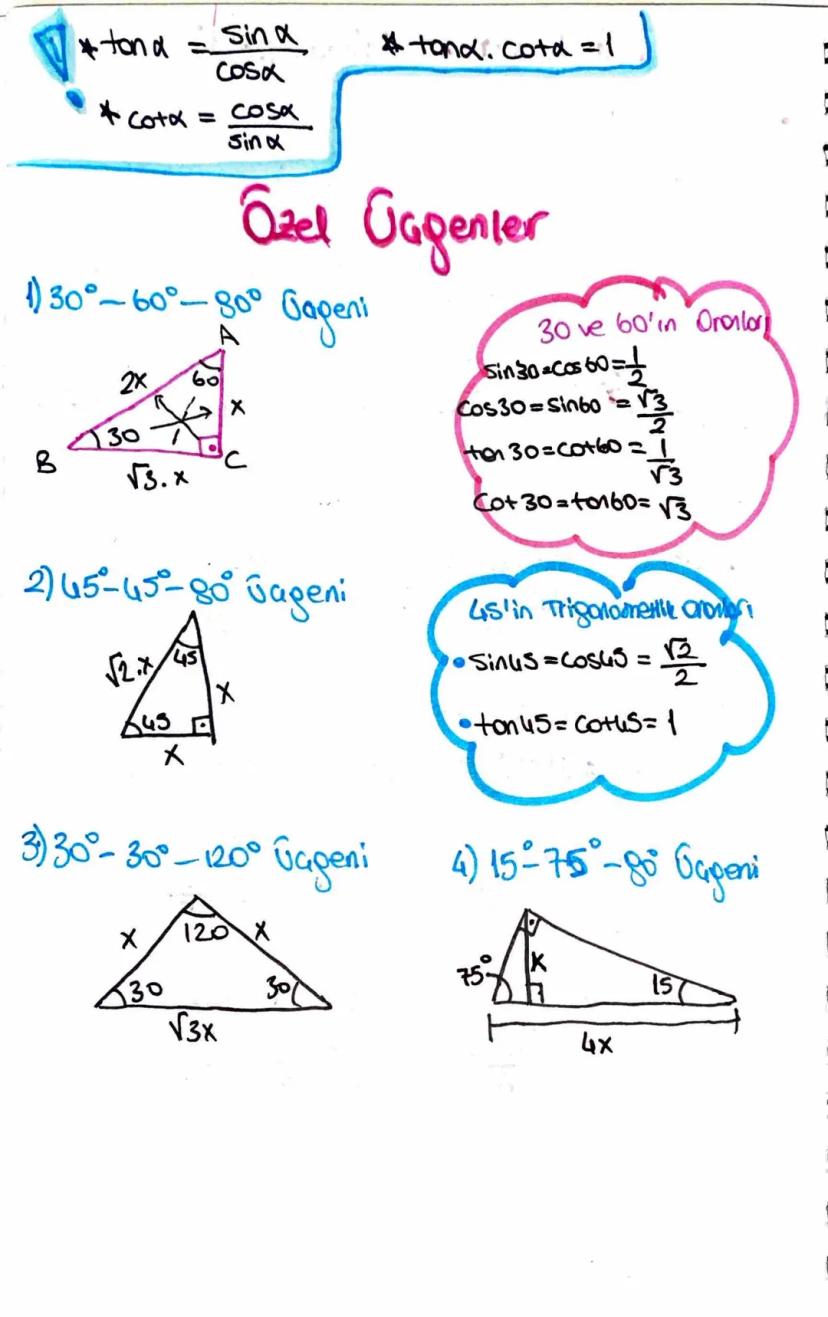 ! * tanα = sinα/cosα * tanα. cotα = 1
* cotα = cosα/sinα
Özel Üçgenler
1) 30° - 60° - 90° Üçgeni
A
2x 60 x
B 30 C
√3.x
30 ve 60'ın Oranları
sin30=cos60=1/2
cos30=sin60=√3/2
tan30=cot60=1/√3
Cot30=tan60=√3
2) 45°-45°-90° Üçgeni
√2.x 45 x
45
x
45'in Trigonometrik oranları
• sin45=cos45=√2/2
• tan45=cot45=1
3) 30° - 30° - 120° Üçgeni
x 120 x
30 30
√3x
4) 15°-75°-90° Üçgeni
75° x 15
4x